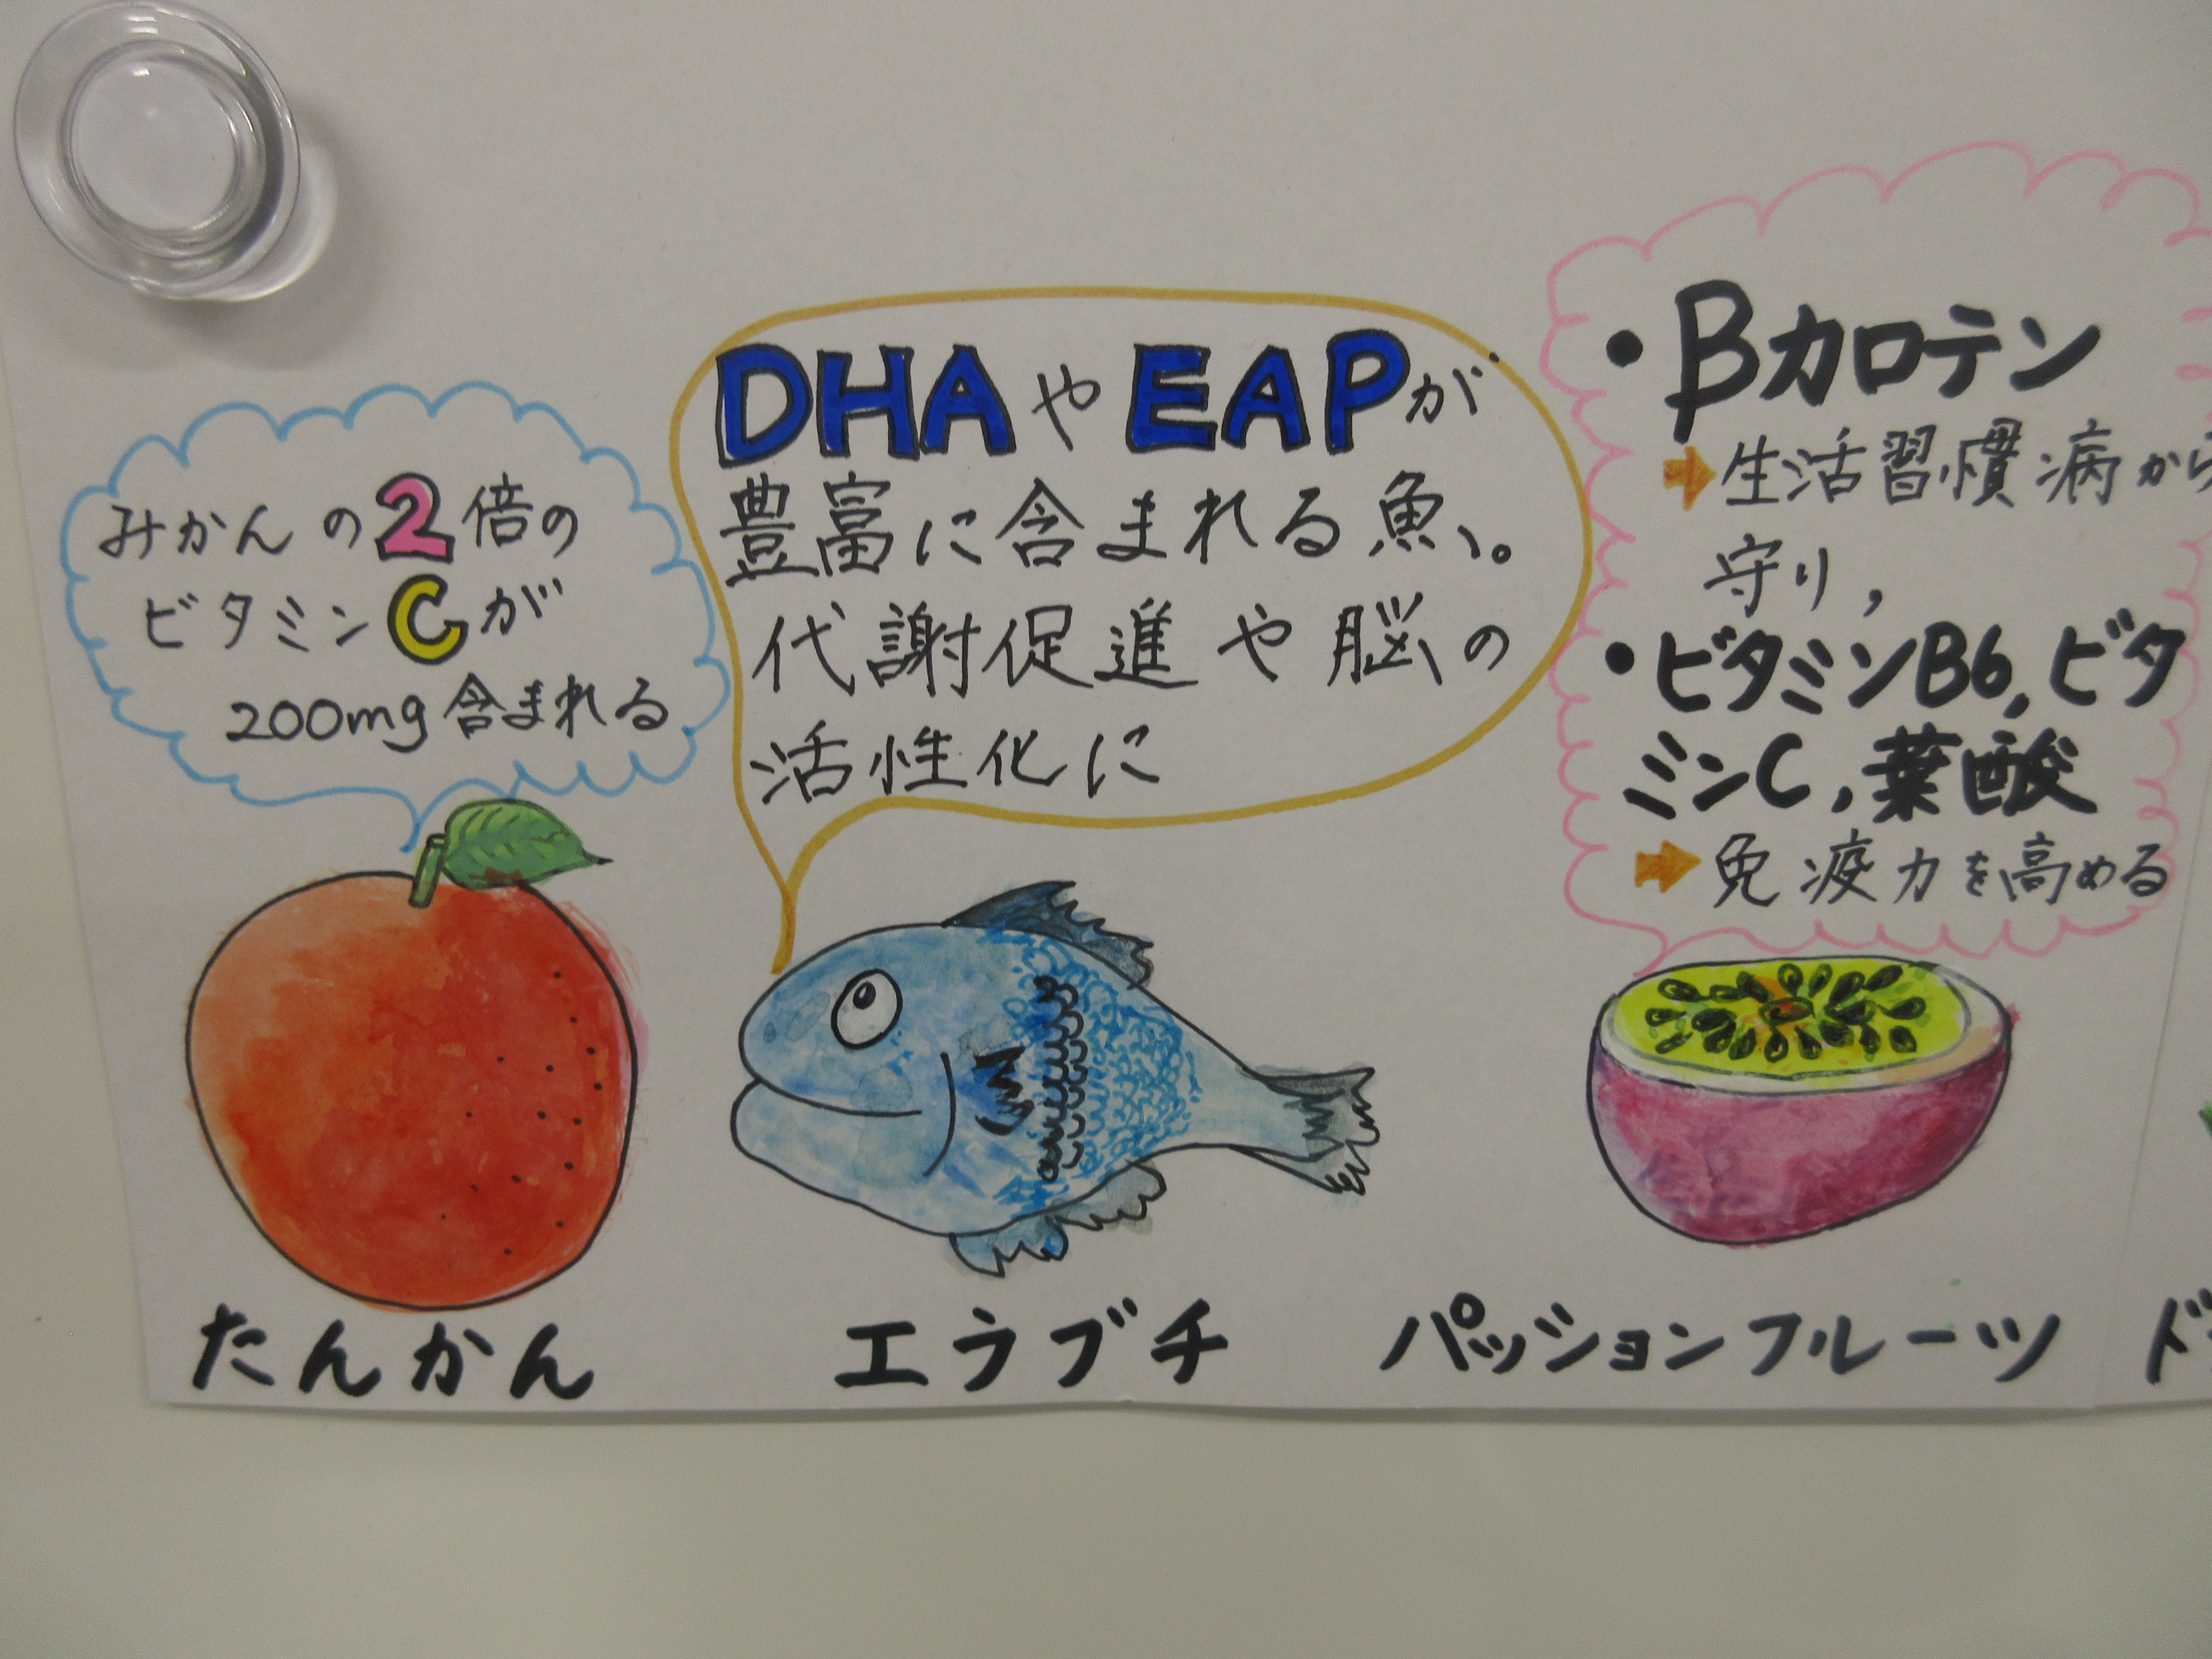 みかんの2倍の
ビタミンCが
200mg含まれる
たんかん
DHAやEAPが
豊富に含まれる魚。
代謝促進や脳の
活性化に
エラブチ
・βカロテン
➡生活習慣病から
守り，
・ビタミンB6，ビタ
ミンC，葉酸
➡免疫力を高める
パッションフルーツ